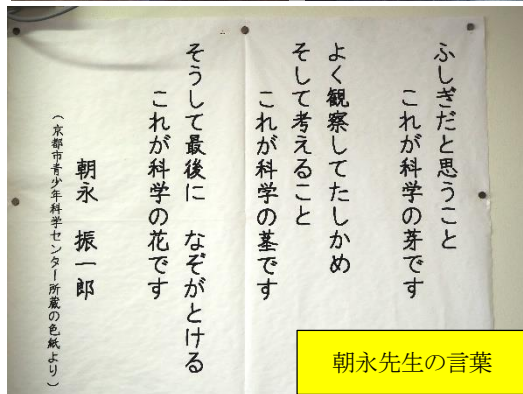 ふしぎだと思うこと
これが科学の芽です
よく観察してたしかめ
そして考えること
これが科学の茎です
そうして最後に なぞがとける
これが科学の花です
朝永 振一郎
(京都市青少年科学センター所蔵の色紙より)
朝永先生の言葉